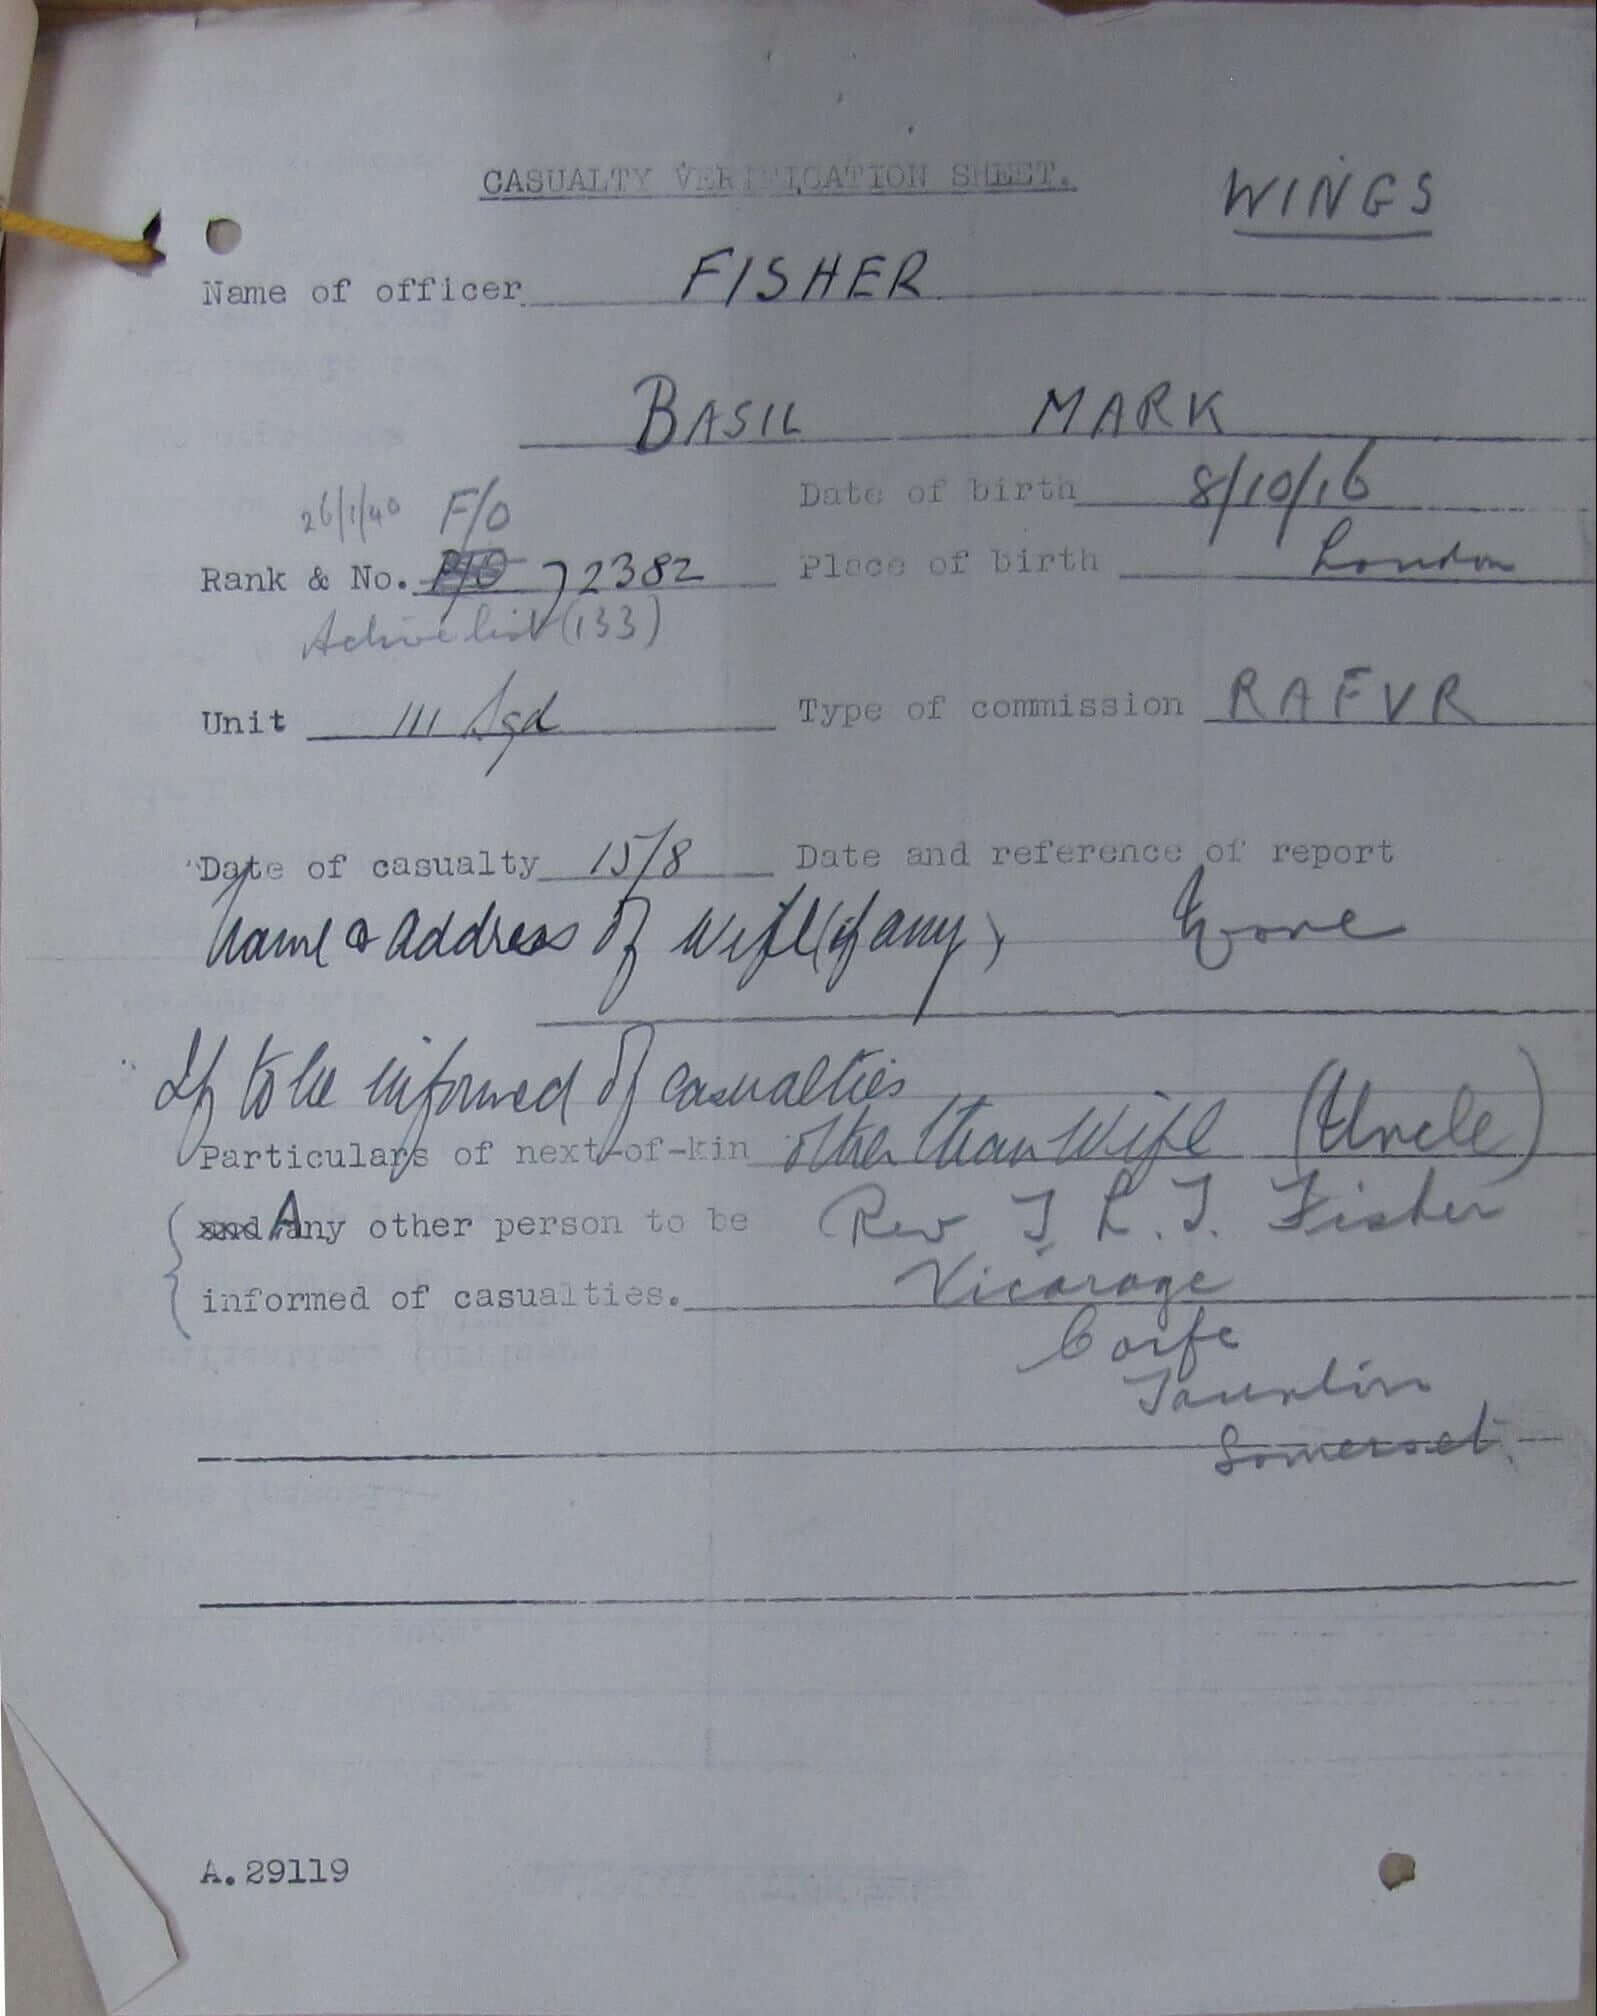 CASUALTY VERIFICATION SHEET.
WINGS
Name of officer FISHER
BASIL MARK
26/1/40 F/O
Date of birth 8/10/16
Rank & No. P/O 72382
Place of birth London
Active list (133)
Unit 111 Sqd
Type of commission RAFVR
Date of casualty 15/8
Date and reference of report
Name & address of wife (if any) None
If to be informed of casualties
Particulars of next-of-kin other than Wife (Uncle)
and Any other person to be Rev T. L. T. Fisher
informed of casualties. Vicarage
Corfe
Taunton
Somerset.
A.29119